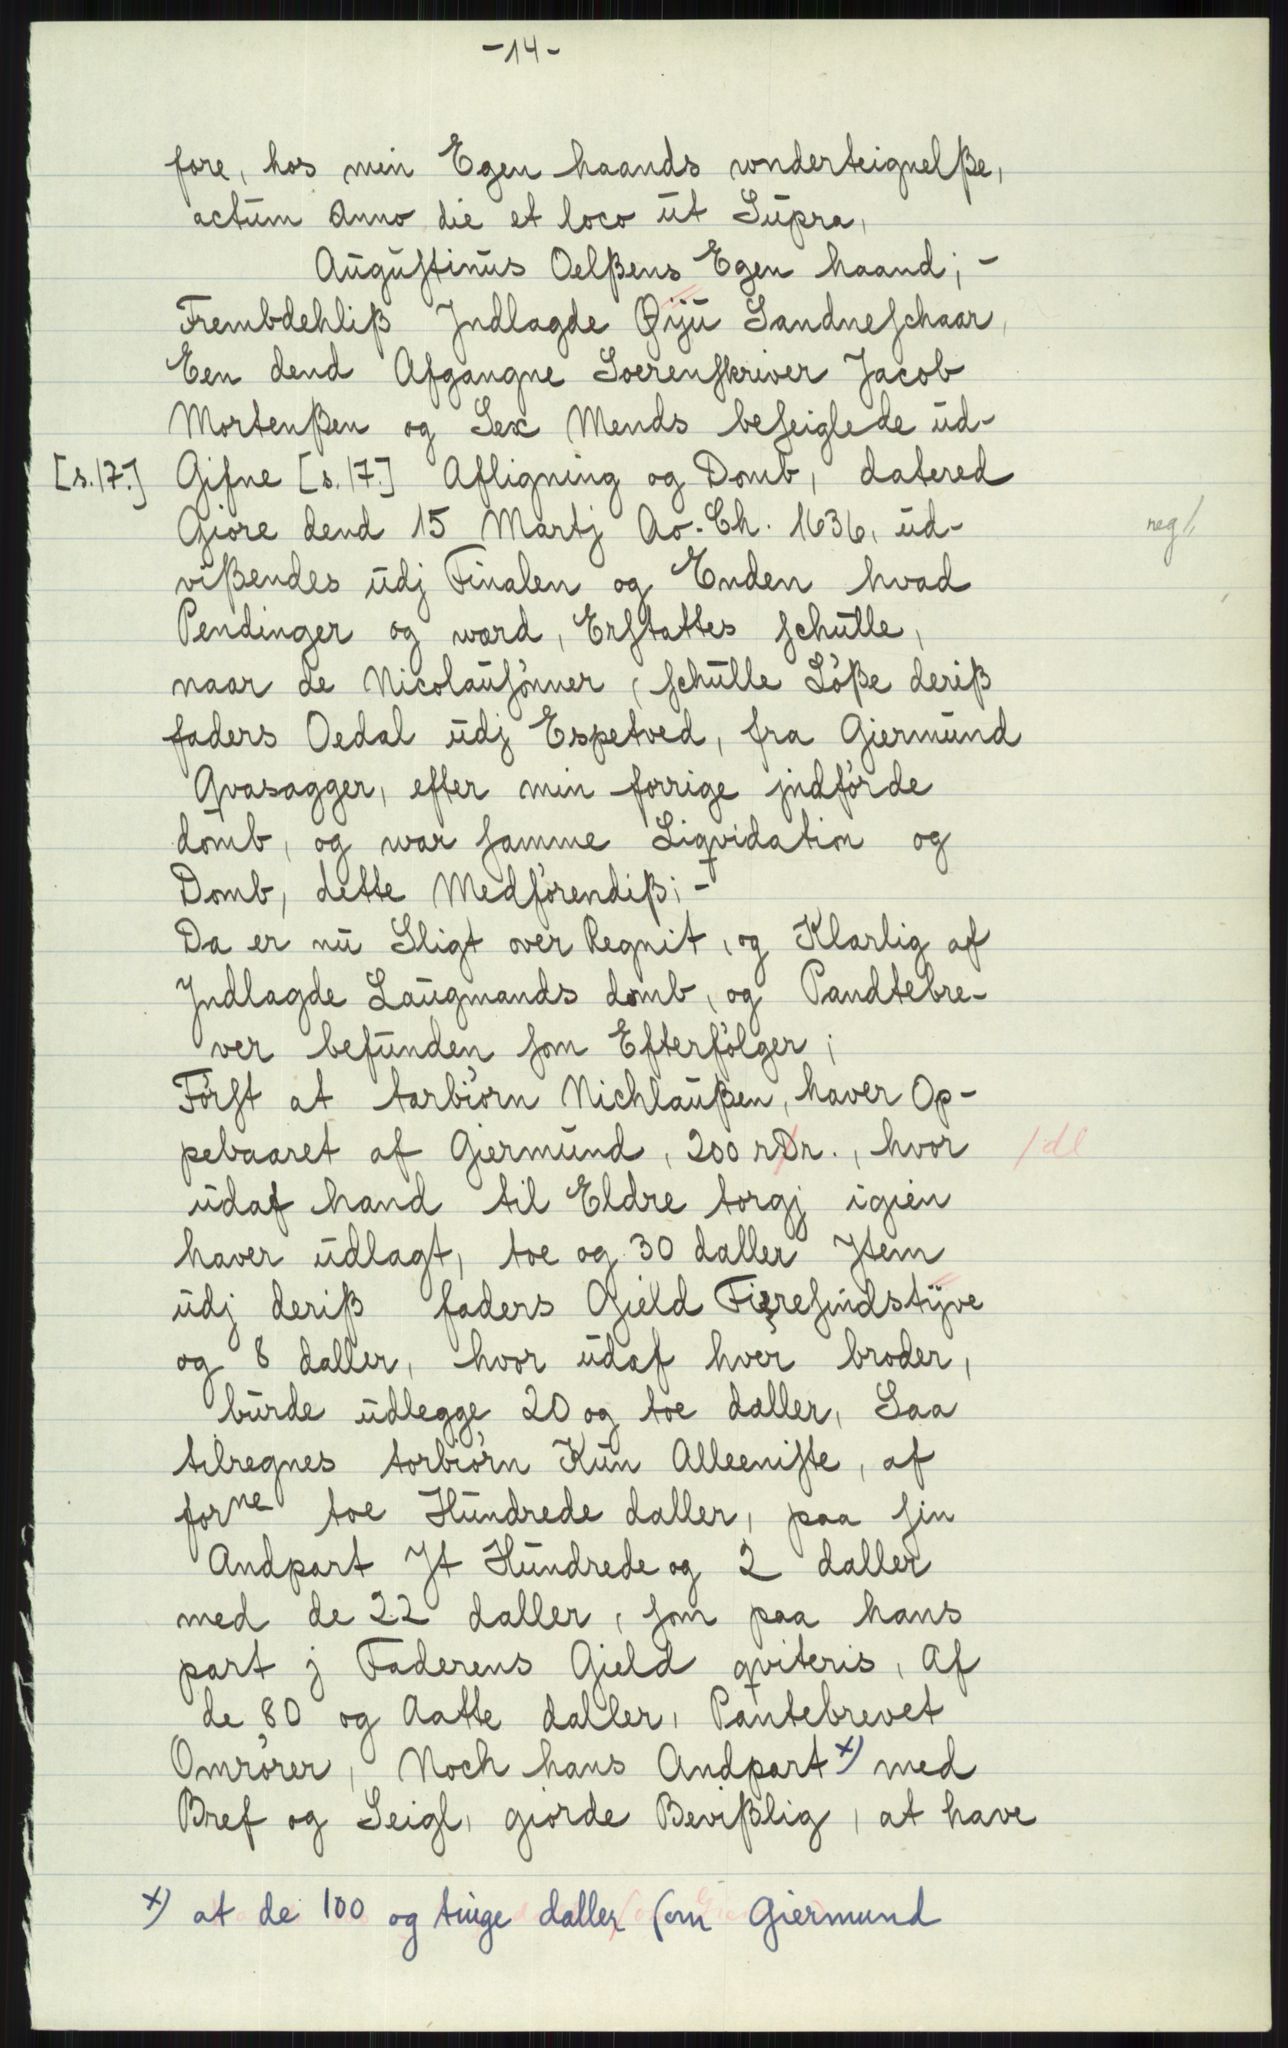 -14-
fore, hos min Egen haands wnderteignelße,
actum Anno die et loco ut Supra,
Augustinus Oelßens Egen haand; -
Frembdehliß Jndlagde Øijü Sandneschaar,
Een dend Afgangne Soerenskriver Jacob
Mortenßen og Sex Mends beseiglede üd-
[s.17.] Gifne [s.17.] Afligning og Domb, datered
Giøre dend 15 Martj Ao. Ch. 1636, üd-
vißendes üdj Finalen og Enden hvad
Pendinger og word, Erstattes schülle,
naar de Nicolaüsönner, schülle Lößе deriß
faders Oedal üdj Espetved, fra Giermünd
Qvasagger, efter min forrige jndförde
domb, og war samme Liqvidation og
Domb, dette Medförendiß; -
Da er nü Sligt over Regnit, og Klarlig af
Jndlagde Laügmands domb, og Pandtebre-
ver befünden som Efterfölger;
Först at tarbiörn Nichlaüßen, haver Op-
pebaaret af Giermünd, 200 rDr., hvor /dl
üdaf hand til Eldre torgj igien
haver üdlagt, toe og 30 daller Jtem
üdj deriß faders Gield Fieresindstÿve
og 8 daller, hvor üdaf hver broder,
bürde üdlegge 20 og toe daller, Saa
tilregnes torbiörn Kün Alleeniste, af
forne toe Hündrede daller, paa sin
Andpart Jt Hündrede og 2 daller
med de 22 daller, som paa hans
part j Faderens Gield qviteris, Af
de 80 og Aatte daller, Pantebrevet
Omrörer, Noch hans Andpart x) med
Bref og Seigl, giorde Bevißlig, at have
x) at de 100 og tiuge daller som Giermund